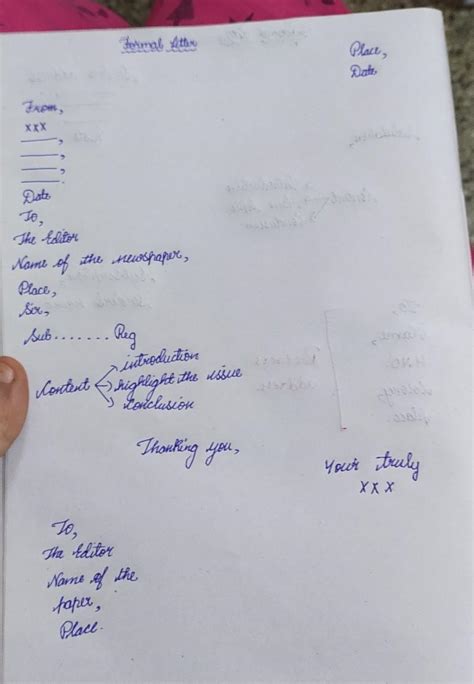 Formal Letter
Place,
Date
From,
xxx
____,
____,
____,
____.
Date
To,
The Editor
Name of the newspaper,
Place,
Sir,
Sub....... Reg
Content
introduction
highlight the issue
conclusion
Thanking you,
Your truly
XXX
To,
The Editor
Name of the
paper,
Place.